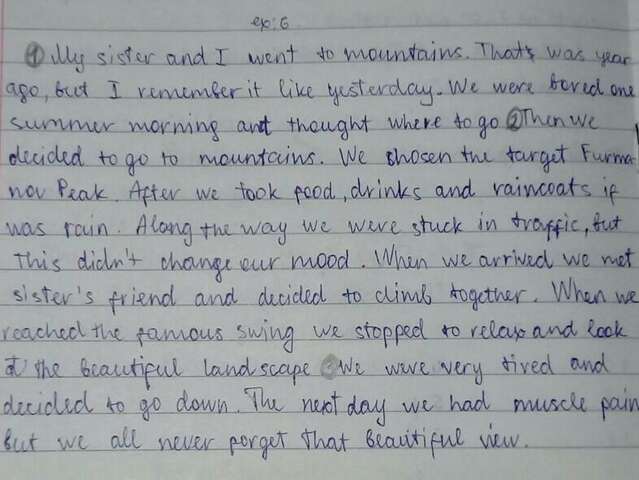 ex: 6
① My sister and I went to mountains. That's was year
ago, but I remember it like yesterday. We were bored one
summer morning and thought where to go ② Then we
decided to go to mountains. We chosen the target Furma
nov Peak. After we took food, drinks and raincoats if
was rain. Along the way we were stuck in traffic, but
this didn't change our mood. When we arrived we met
sister's friend and decided to climb together. When we
reached the famous swing we stopped to relax and look
at the beautiful landscape We were very tired and
decided to go down. The next day we had muscle pain
but we all never forget that beautiful view.